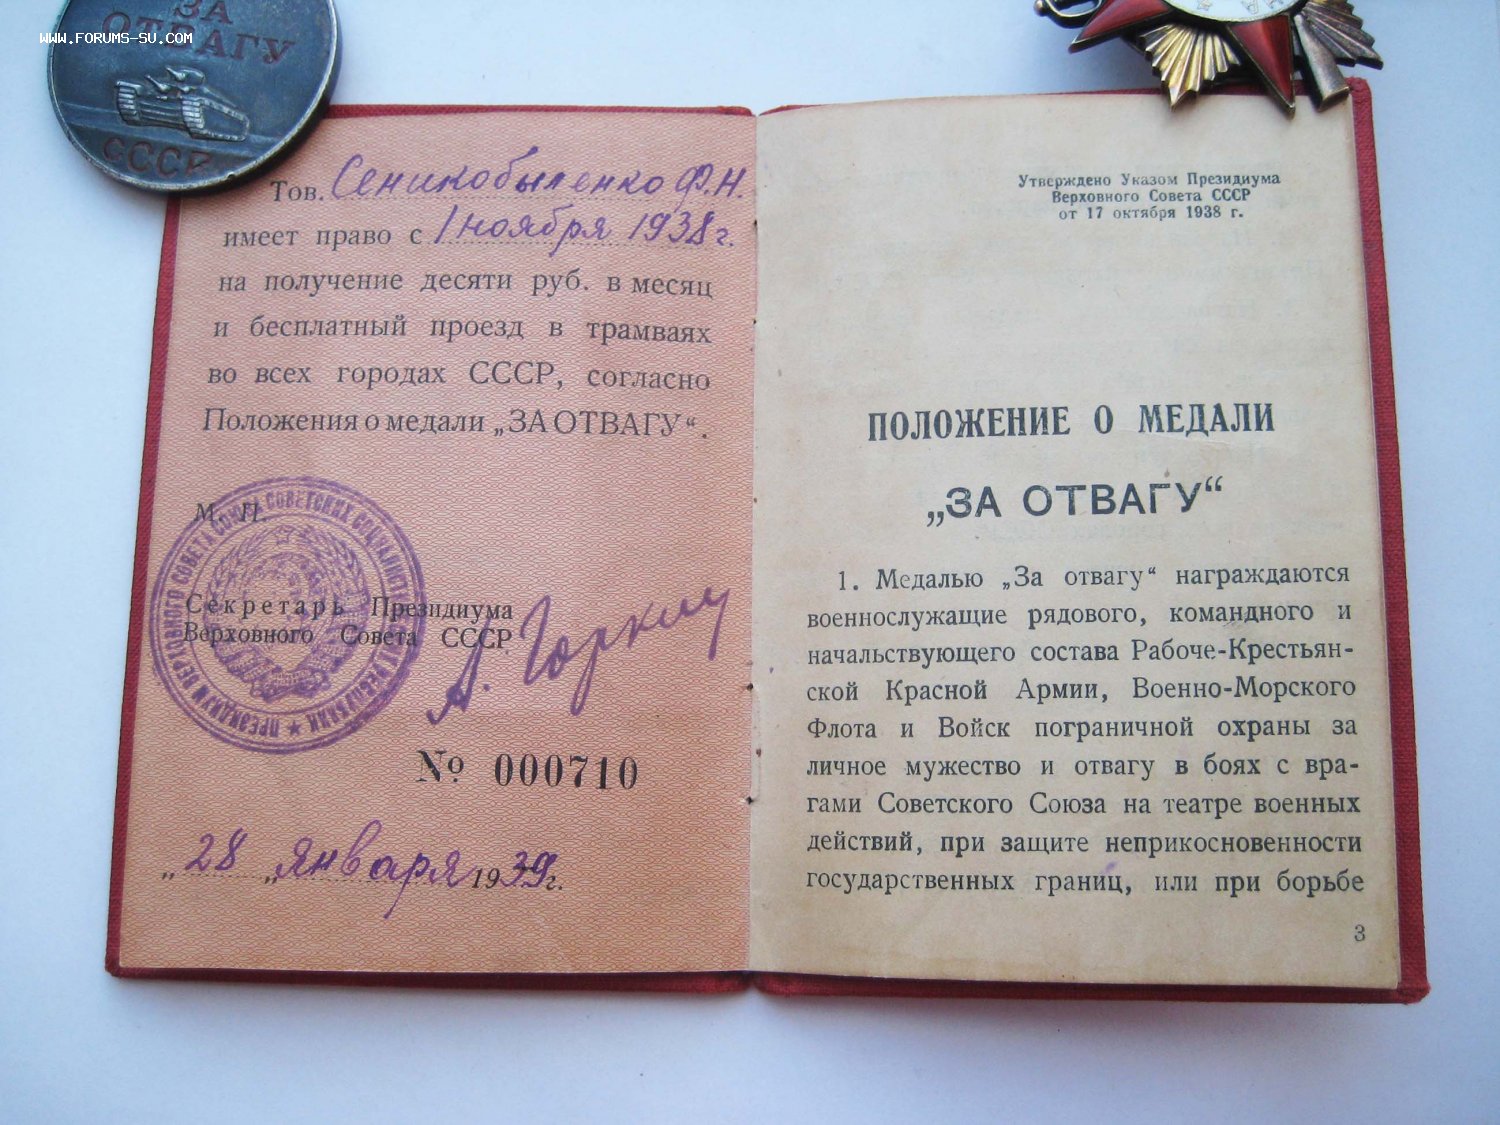 www.forums-su.com
ЗА
ОТВАГУ
СССР
Тов. Сеникобыленко Ф.Н.
имеет право с 1 ноября 1938 г.
на получение десяти руб. в месяц
и бесплатный проезд в трамваях
во всех городах СССР, согласно
Положения о медали „ЗА ОТВАГУ“.
М. П.
ПРЕЗИДИУМ ВЕРХОВНОГО СОВЕТА СОЮЗА СОВЕТСКИХ СОЦИАЛИСТИЧЕСКИХ РЕСПУБЛИК
Секретарь Президиума
Верховного Совета СССР
А. Горкин
№ 000710
„28 „ января 1939 г.
Утверждено Указом Президиума
Верховного Совета СССР
от 17 октября 1938 г.
ПОЛОЖЕНИЕ О МЕДАЛИ
„ЗА ОТВАГУ“
1. Медалью „За отвагу“ награждаются
военнослужащие рядового, командного и
начальствующего состава Рабоче-Крестьян-
ской Красной Армии, Военно-Морского
Флота и Войск пограничной охраны за
личное мужество и отвагу в боях с вра-
гами Советского Союза на театре военных
действий, при защите неприкосновенности
государственных границ, или при борьбе
3